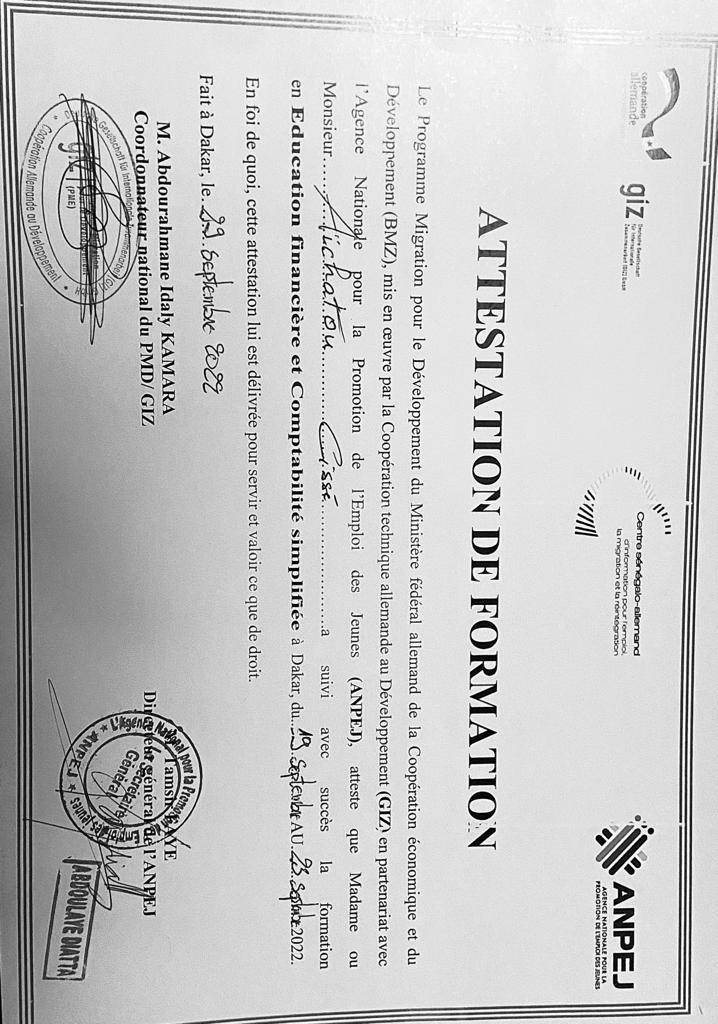 coopération
allemande
giz Deutsche Gesellschaft
für Internationale
Zusammenarbeit (GIZ) GmbH
Centre sénégalo-allemand
d'information pour l'emploi,
la migration et la réintégration
ANPEJ
AGENCE NATIONALE POUR LA
PROMOTION DE L'EMPLOI DES JEUNES
ATTESTATION DE FORMATION
Le Programme Migration pour le Développement du Ministère fédéral allemand de la Coopération économique et du
Développement (BMZ), mis en œuvre par la Coopération technique allemande au Développement (GIZ) en partenariat avec
l'Agence Nationale pour la Promotion de l'Emploi des Jeunes (ANPEJ), atteste que Madame ou
Monsieur......Aichatou............Cissé......................a suivi avec succès la formation
en Education financière et Comptabilité simplifiée à Dakar, du..19 Septembre AU..23 Septembre 2022.
En foi de quoi, cette attestation lui est délivrée pour servir et valoir ce que de droit.
Fait à Dakar, le..29 Septembre 2022
M. Abdourahmane Idaly KAMARA
Coordonnateur national du PMD/ GIZ
Gesellschaft für Internationale
giz
(PME)
Coopération Allemande au Développement
Tamsir FAYE
Directeur général de l'ANPEJ
L'Agence Nationale pour la Promotion
des Jeunes
ANPEJ
Le Secrétaire
Général
ABDOULAYE DIATTA